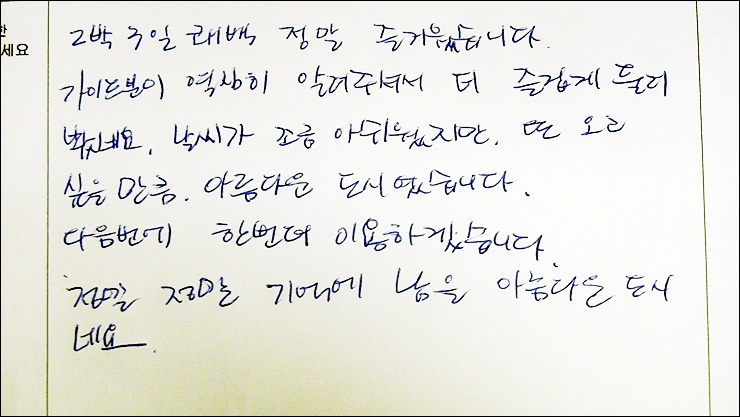 한
세요
2박 3일 퀘백 정말 즐거웠습니다.
가이드분이 열심히 알려주셔서 더 즐겁게 둘러
봤네요. 날씨가 조금 아쉬웠지만, 또 오고
싶을 만큼. 아름다운 도시였습니다.
다음번에 한번더 이용하겠습니다.
정말 정말 기억에 남을 아름다운 도시
네요.